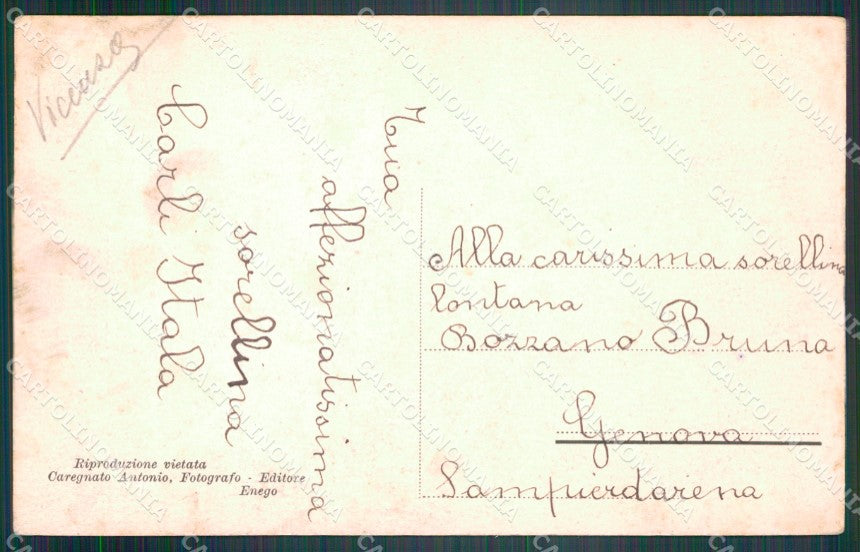 Viccasa
Tua
affezionatissima
sorellina
Carli Itala
Alla carissima sorellina
lontana
Bozzano Bruna
Genova
Sampierdarena
Riproduzione vietata
Caregnato Antonio, Fotografo - Editore
Enego
CARTOLINOMANIA